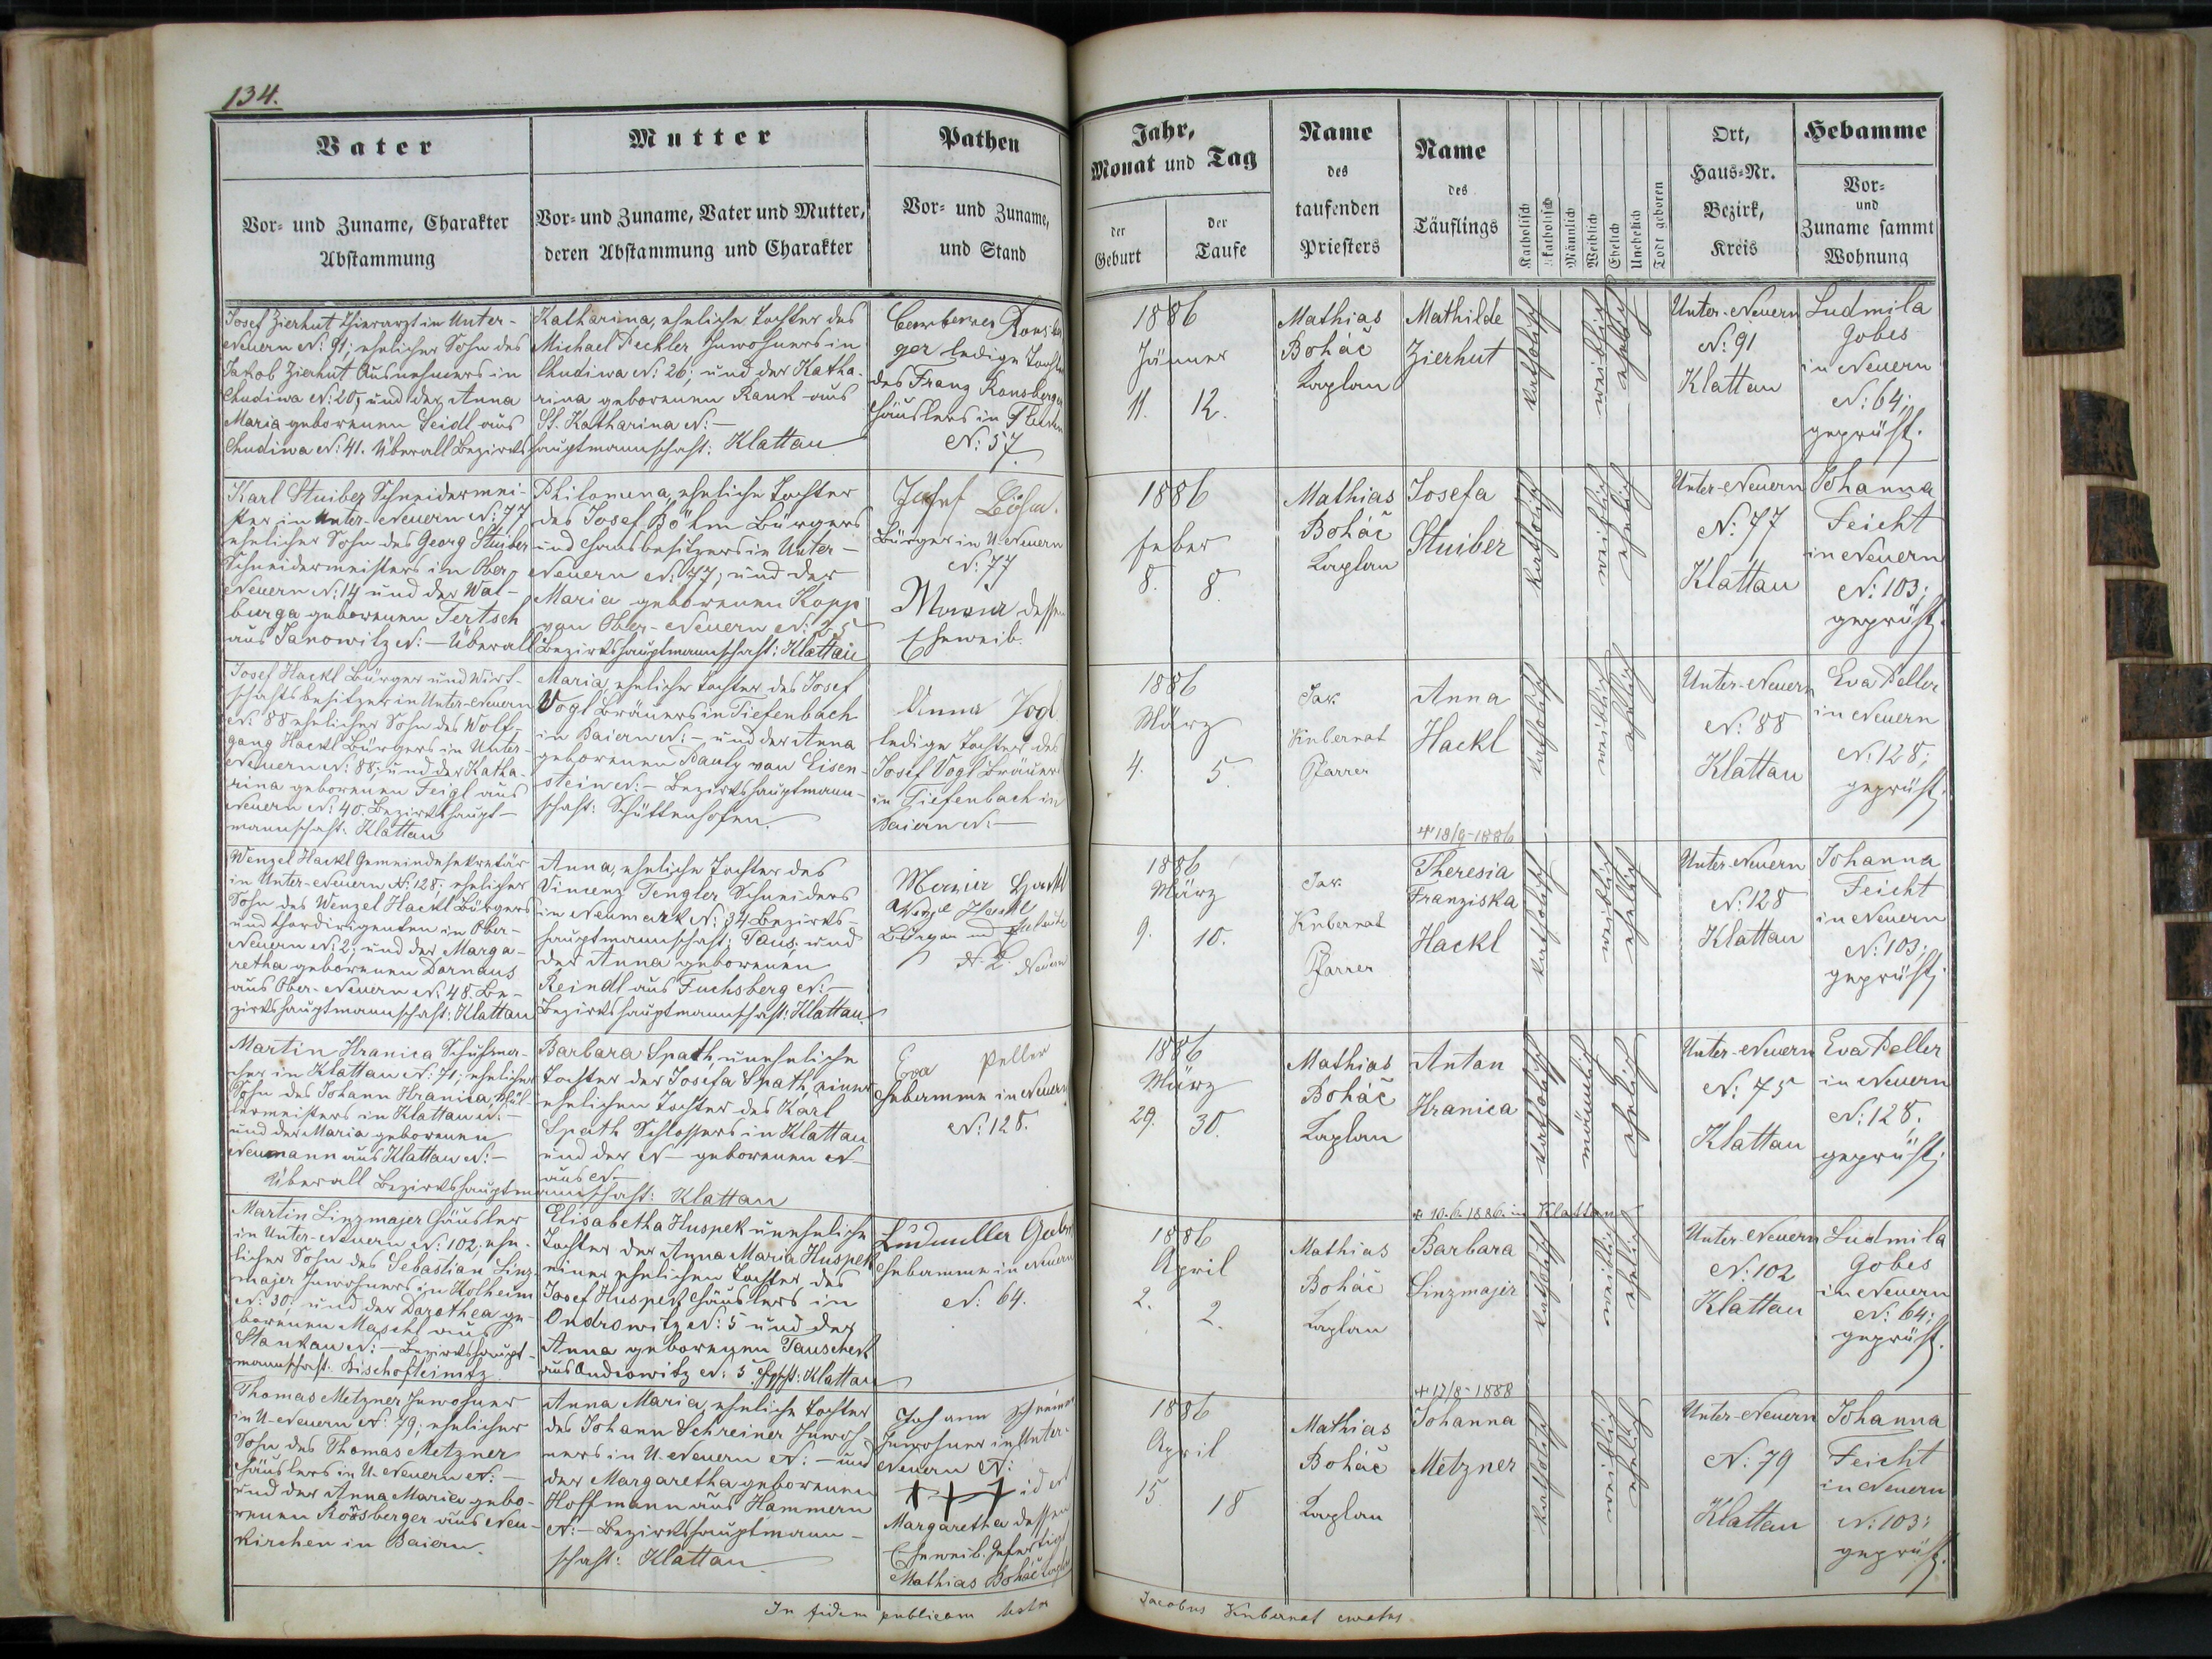 134.
Vater
Vor- und Zuname, Charakter
Abstammung
Mutter
Vor- und Zuname, Vater und Mutter,
deren Abstammung und Charakter
Pathen
Vor- und Zuname,
und Stand
Josef Zierhut Thierarzt in Unter-
Neuern N: 91; ehelicher Sohn des
Jakob Zierhut Ausnehmers in
Chudiwa N: 20, und der Anna
Maria geborenen Seidl aus
Chudiwa N: 41. Überall Bezirks
Katharina, eheliche Tochter des
Michael Pechler Inwohners in
Chudiwa N: 26; und der Katha-
rina geborenen Rank aus
St. Katharina N: –
hauptmannschaft: Klattau
ger ledige Tochter
des Franz Ronsberger
Häuslers in
N: 57
Karl Stuiber Schneidermei-
ster in Unter-Neuern N: 77
ehelicher Sohn des Georg Stuiber
Schneidermeisters in Ober-
Neuern N: 14 und der Wal-
burga geborenen Tertsch
aus Janowitz N: – Überall
Philomena, eheliche Tochter
des Josef Böhm Bürgers
und Hausbesitzers in Unter-
Neuern N: 77; und der
Maria geborenen Kopp
von Ober-Neuern N:
Bezirkshauptmannschaft: Klattau
Josef Böhm.
Bürger in U. Neuern
N: 77
Maria dessen
Eheweib.
Josef Hackl Bürger und Wirt-
schaftsbesitzer in Unter-Neuern
N: 88 ehelicher Sohn des Wolf-
gang Hackl Bürgers in Unter-
Neuern N: 88; und der Katha-
rina geborenen Feigl aus
Neuern N: 40. Bezirkshaupt-
mannschaft: Klattau
Maria, eheliche Tochter des Josef
Vogl Bräuers in Tiefenbach
in Baiern N: – und der Anna
geborenen Pauly von Eisen-
stein N: – Bezirkshauptmann-
schaft: Schüttenhofen.
Anna Vogl
ledige Tochter des
Josef Vogl Bräuers
in Tiefenbach in
Baiern N: –
Wenzel Hackl Gemeindesekretär
in Unter-Neuern N: 128; ehelicher
Sohn des Wenzel Hackl Bürgers
und Chordirigenten in Ober-
Neuern N: 2; und der Marga-
retha geborenen Dornaus
aus Ober-Neuern N: 48. Be-
zirkshauptmannschaft: Klattau
Anna, eheliche Tochter des
Vincenz Tengler Schneiders
in Neumark N: 34 Bezirks-
hauptmannschaft: Taus; und
der Anna geborenen
Reindl aus Fuchsberg N: –
Bezirkshauptmannschaft: Klattau.
Maria Hackl
Wenzl Hackl
N: 2. Neuern
Martin Hranica Schuhma-
cher in Klattau N: 71; ehelicher
Sohn des Johann Hranica, Mül-
lermeisters in Klattau N: –
und der Maria geborenen
Neumann aus Klattau N: –
Überall Bezirkshauptm
Barbara Spath uneheliche
Tochter der Josefa Spath, einer
ehelichen Tochter des Karl
Spath Schlossers in Klattau
und der N – geborenen N –
aus N –
annschaft: Klattau
Eva Peller
Hebamme in Neuern
N: 128.
Martin Linzmajer Häusler
in Unter-Neuern N: 102; ehe-
licher Sohn des Sebastian Linz-
majer Inwohners in Kolheim
N: 30; und der Dorothea ge-
borenen Maschl aus
Stankau N: – Bezirkshaupt-
mannschaft: Bischofteinitz
Elisabetha Huspek uneheliche
Tochter der Anna Maria Huspek
einer ehelichen Tochter des
Josef Huspek Häuslers in
Ondrowitz N: 5 und der
Anna geborenen Tauschek
aus Ondrowitz N: 5. Klattau
Ludmilla
Hebamme in Neuern
N: 64.
Thomas Metzner Inwohner
in U-Neuern N: 79; ehelicher
Sohn des Thomas Metzner
Häuslers in U. Neuern N: –
und der Anna Maria gebo-
renen Rössberger aus Neu-
kirchen in Baiern.
Anna Maria, eheliche Tochter
des Johann Schreiner Inwoh-
ners in U. Neuern N: – und
der Margaretha geborenen
Hoffmann aus Hammern
N: – Bezirkshauptmann-
schaft: Klattau
Johann Schreiner
Inwohner in Unter-
Neuern N:
+++ id est
Margaretha dessen
Eheweib. Gefertigt
Mathias Boháč
In fidem publicam
Jahr,
Monat und Tag
der
Geburt
der
Taufe
Name
des
taufenden
Priesters
Name
des
Täuflings
Katholisch
Akatholisch
Männlich
Weiblich
Ehelich
Unehelich
Todt geboren
Ort,
Haus-Nr.
Bezirk,
Kreis
Hebamme
Vor-
und
Zuname sammt
Wohnung
1886
Jänner
11. 12.
Mathias
Boháč
Kaplan
Mathilde
Zierhut
katholisch
weiblich
ehelich
Unter-Neuern
N: 91
Klattau
Ludmila
Gobes
in Neuern
N: 64;
geprüft.
1886
Feber
8. 8.
Mathias
Boháč
Kaplan
Josefa
Stuiber
katholisch
weiblich
ehelich
Unter-Neuern
N: 77
Klattau
Johanna
Feicht
in Neuern
N: 103;
geprüft.
1886
März
4. 5.
Jak.
Kubernat
Pfarrer
Anna
Hackl
katholisch
weiblich
ehelich
Unter-Neuern
N: 88
Klattau
Eva Peller
in Neuern
N: 128;
geprüft.
1886
März
9. 10.
Jak.
Kubernat
Pfarrer
+ 18/9-1886
Theresia
Franziska
Hackl
katholisch
weiblich
ehelich
Unter-Neuern
N: 128
Klattau
Johanna
Feicht
in Neuern
N: 103;
geprüft.
1886
März
29. 30.
Mathias
Boháč
Kaplan
Anton
Hranica
katholisch
männlich
ehelich
Unter-Neuern
N: 75
Klattau
Eva Peller
in Neuern
N: 128;
geprüft.
1886
April
2. 2.
Mathias
Boháč
Kaplan
+ 10.6.1886. in Klattau
Barbara
Linzmajer
katholisch
weiblich
ehelich
Unter-Neuern
N: 102
Klattau
Ludmila
Gobes
in Neuern
N: 64;
geprüft.
1886
April
15. 18
Mathias
Boháč
Kaplan
+ 17/8-1888
Johanna
Metzner
katholisch
weiblich
ehelich
Unter-Neuern
N: 79
Klattau
Johanna
Feicht
in Neuern
N: 103;
geprüft.
Jacobus Kubernat curatus.